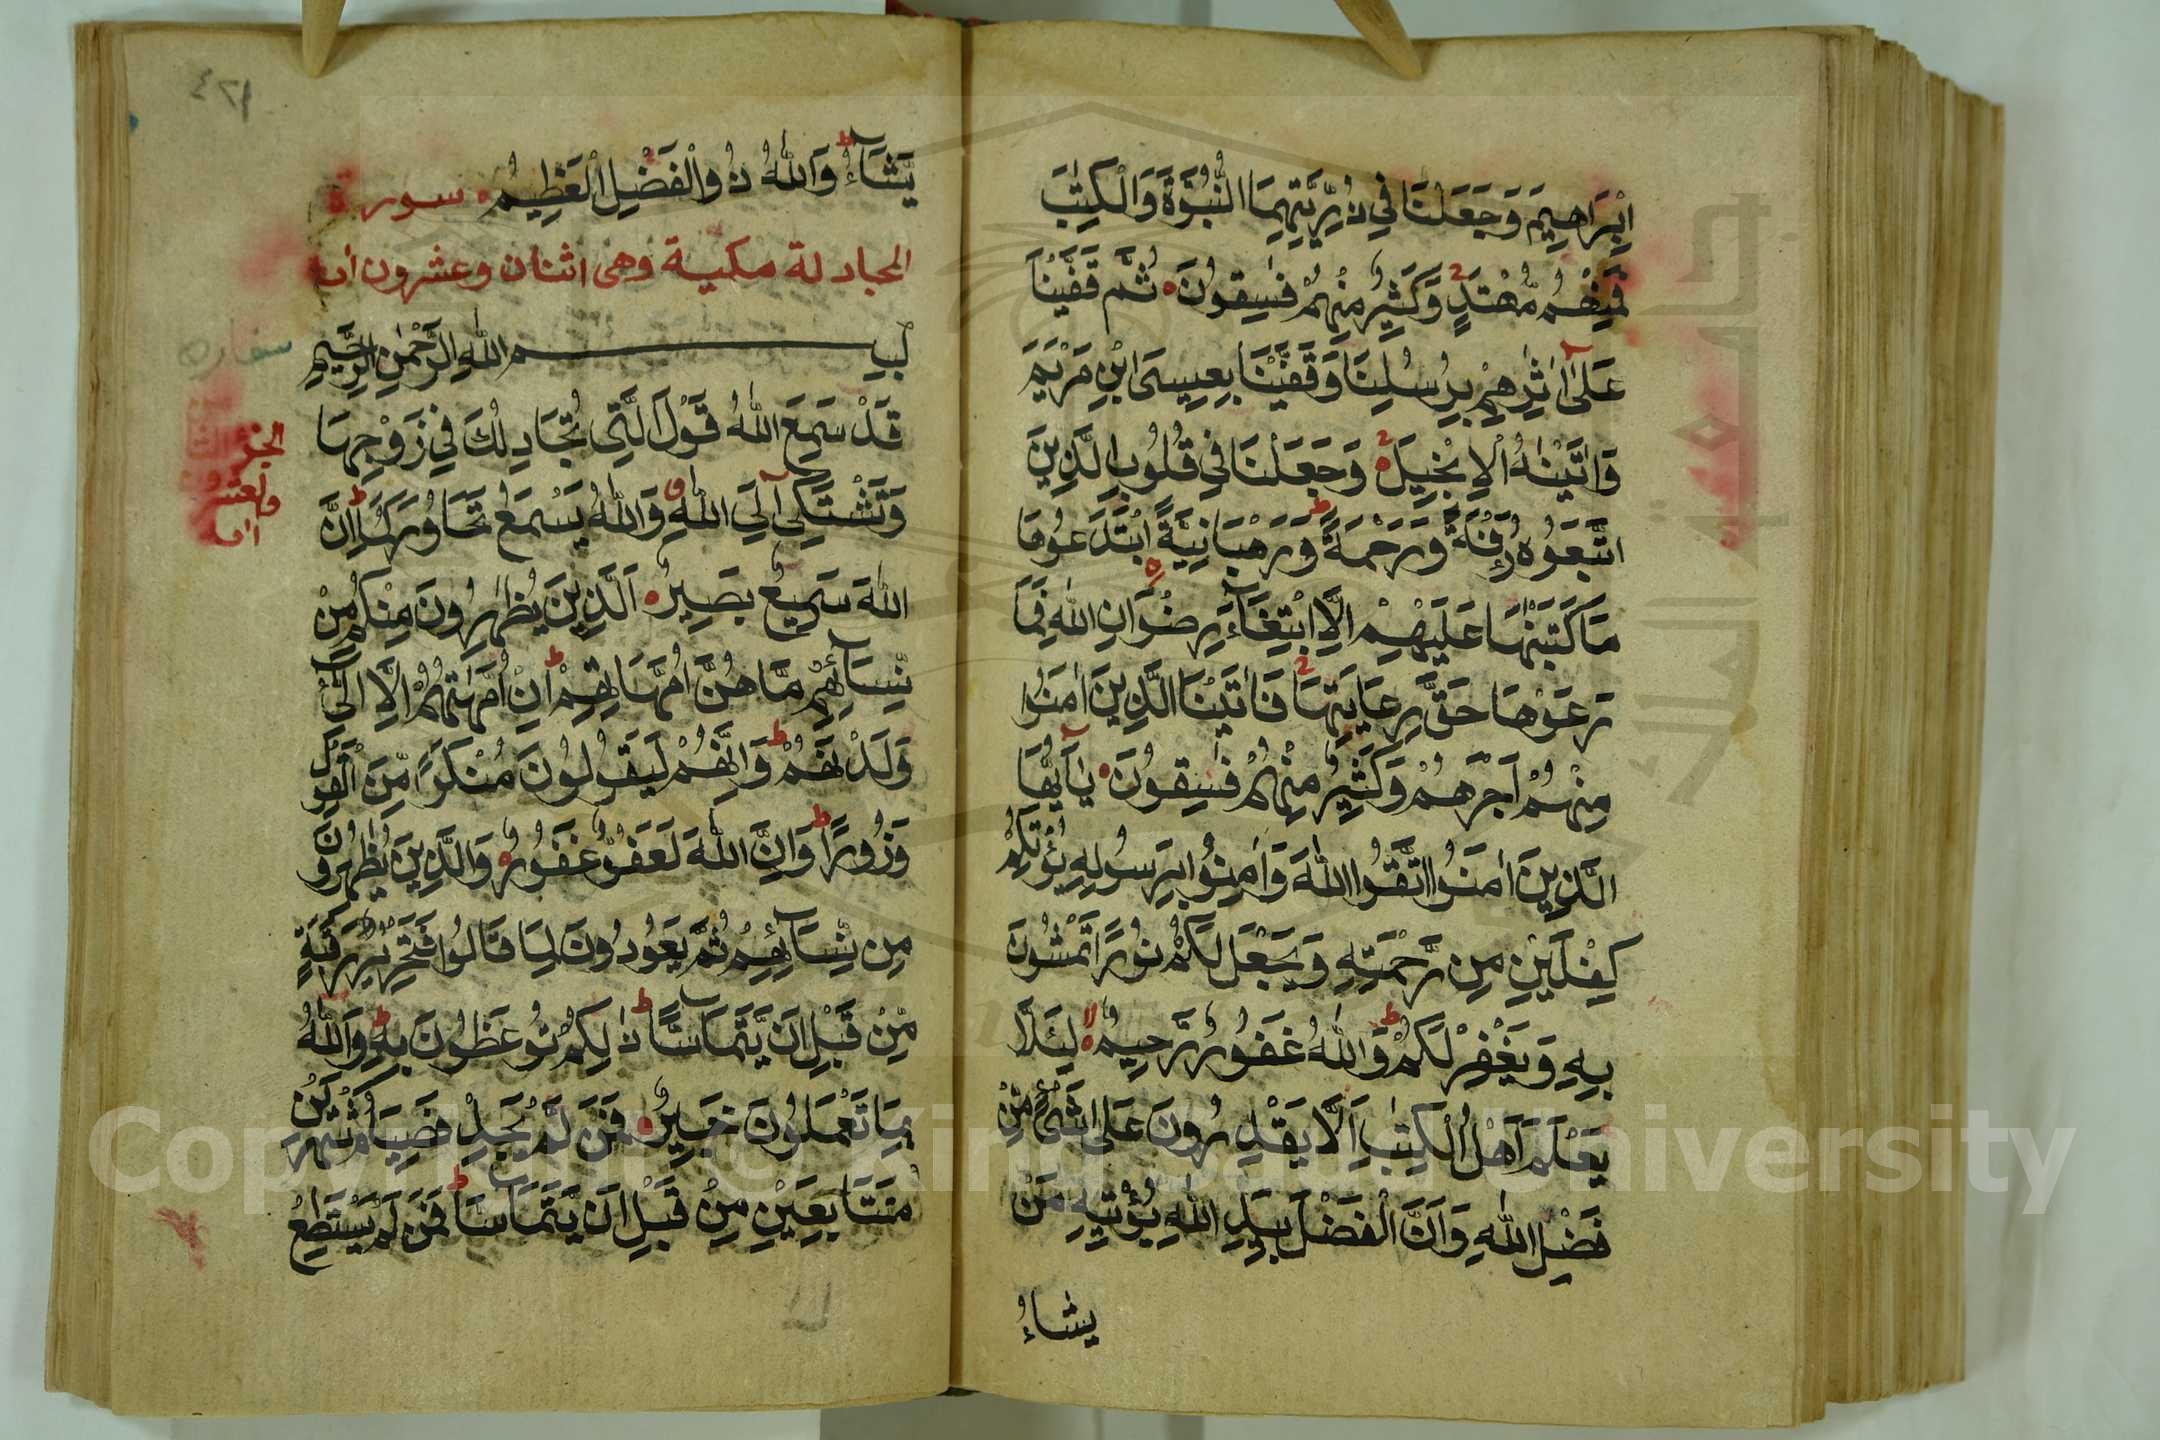 اِبْرَاهِيمَ وَجَعَلْنَا فِي ذُرِّيَّتِهِمَا النُّبُوَّةَ وَالْكِتٰبَ
فَمِنْهُمْ مُّهْتَدٍ وَّكَثِيرٌ مِنْهُمْ فٰسِقُونَ ثُمَّ قَفَّيْنَا
عَلٰٓى اٰثٰرِهِمْ بِرُسُلِنَا وَقَفَّيْنَا بِعِيسَى ابْنِ مَرْيَمَ
وَاٰتَيْنٰهُ الْاِنْجِيلَ وَجَعَلْنَا فِي قُلُوبِ الَّذِينَ
اتَّبَعُوهُ رَأْفَةً وَرَحْمَةً وَرَهْبَانِيَّةً ابْتَدَعُوهَا
مَا كَتَبْنٰهَا عَلَيْهِمْ اِلَّا ابْتِغَآءَ رِضْوَانِ اللّٰهِ فَمَا
رَعَوْهَا حَقَّ رِعَايَتِهَا فَاٰتَيْنَا الَّذِينَ اٰمَنُوا
مِنْهُمْ اَجْرَهُمْ وَكَثِيرٌ مِنْهُمْ فٰسِقُونَ يٰٓاَيُّهَا
الَّذِينَ اٰمَنُوا اتَّقُوا اللّٰهَ وَاٰمِنُوا بِرَسُولِهِ يُؤْتِكُمْ
كِفْلَيْنِ مِن رَّحْمَتِهِ وَيَجْعَل لَّكُمْ نُورًا تَمْشُونَ
بِهِ وَيَغْفِرْ لَكُمْ وَاللّٰهُ غَفُورٌ رَّحِيمٌ لِئَلَّا
يَعْلَمَ اَهْلُ الْكِتٰبِ اَلَّا يَقْدِرُونَ عَلٰى شَيْءٍ مِّنْ
فَضْلِ اللّٰهِ وَاَنَّ الْفَضْلَ بِيَدِ اللّٰهِ يُؤْتِيهِ مَنْ
يشاءُ
٤٢١
يَّشَآءُ وَاللّٰهُ ذُو الْفَضْلِ الْعَظِيمِ سورة
المجادلة مكية وهى اثنان وعشرون اٰية
بِسْمِ اللّٰهِ الرَّحْمٰنِ الرَّحِيمِ
قَدْ سَمِعَ اللّٰهُ قَوْلَ الَّتِى تُجَادِلُكَ فِي زَوْجِهَا
وَتَشْتَكِىٓ اِلَى اللّٰهِ وَاللّٰهُ يَسْمَعُ تَحَاوُرَكُمَا اِنَّ
اللّٰهَ سَمِيعٌ بَصِيرٌ اَلَّذِينَ يُظٰهِرُونَ مِنْكُمْ مِّنْ
نِّسَآئِهِمْ مَّا هُنَّ اُمَّهَاتِهِمْ اِنْ اُمَّهٰتُهُمْ اِلَّا الّٰٓئِى
وَلَدْنَهُمْ وَاِنَّهُمْ لَيَقُولُونَ مُنْكَرًا مِّنَ الْقَوْلِ
وَزُورًا وَاِنَّ اللّٰهَ لَعَفُوٌّ غَفُورٌ وَالَّذِينَ يُظٰهِرُونَ
مِن نِّسَآئِهِمْ ثُمَّ يَعُودُونَ لِمَا قَالُوا فَتَحْرِيرُ رَقَبَةٍ
مِّنْ قَبْلِ اَن يَّتَمَآسَّا ذٰلِكُمْ تُوعَظُونَ بِهِ وَاللّٰهُ
بِمَا تَعْمَلُونَ خَبِيرٌ فَمَن لَّمْ يَجِدْ فَصِيَامُ شَهْرَيْنِ
مُتَتَابِعَيْنِ مِنْ قَبْلِ اَن يَّتَمَآسَّا فَمَن لَّمْ يَسْتَطِعْ
Copyright © King Saud University